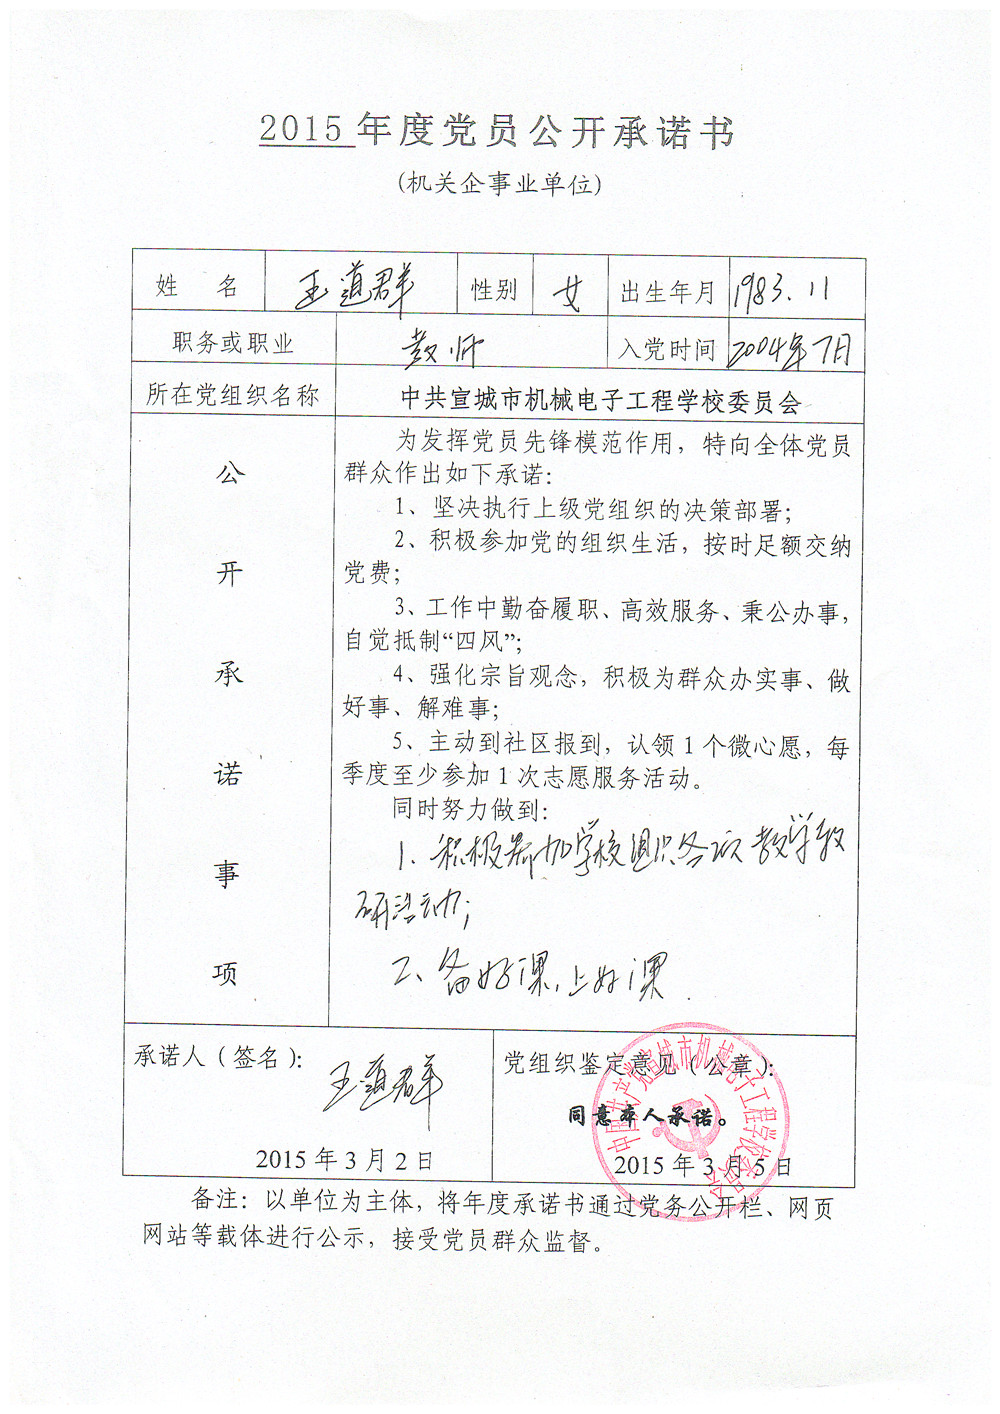 2015 年度党员公开承诺书
(机关企事业单位)
姓 名 王道群 性别 女 出生年月 1983.11
职务或职业 教师 入党时间 2004年7月
所在党组织名称 中共宣城市机械电子工程学校委员会
公开承诺事项
为发挥党员先锋模范作用，特向全体党员
群众作出如下承诺：
1、坚决执行上级党组织的决策部署；
2、积极参加党的组织生活，按时足额交纳
党费；
3、工作中勤奋履职、高效服务、秉公办事，
自觉抵制“四风”；
4、强化宗旨观念，积极为群众办实事、做
好事、解难事；
5、主动到社区报到，认领 1 个微心愿，每
季度至少参加 1 次志愿服务活动。
同时努力做到：
1、积极参加学校组织各项教学教
研活动；
2、备好课，上好课.
承诺人（签名）：
王道群
2015 年 3 月 2 日
党组织鉴定意见（公章）：
同意本人承诺。
2015 年 3 月 5 日
中国共产党宣城市机械电子工程学校委员会
备注：以单位为主体，将年度承诺书通过党务公开栏、网页
网站等载体进行公示，接受党员群众监督。